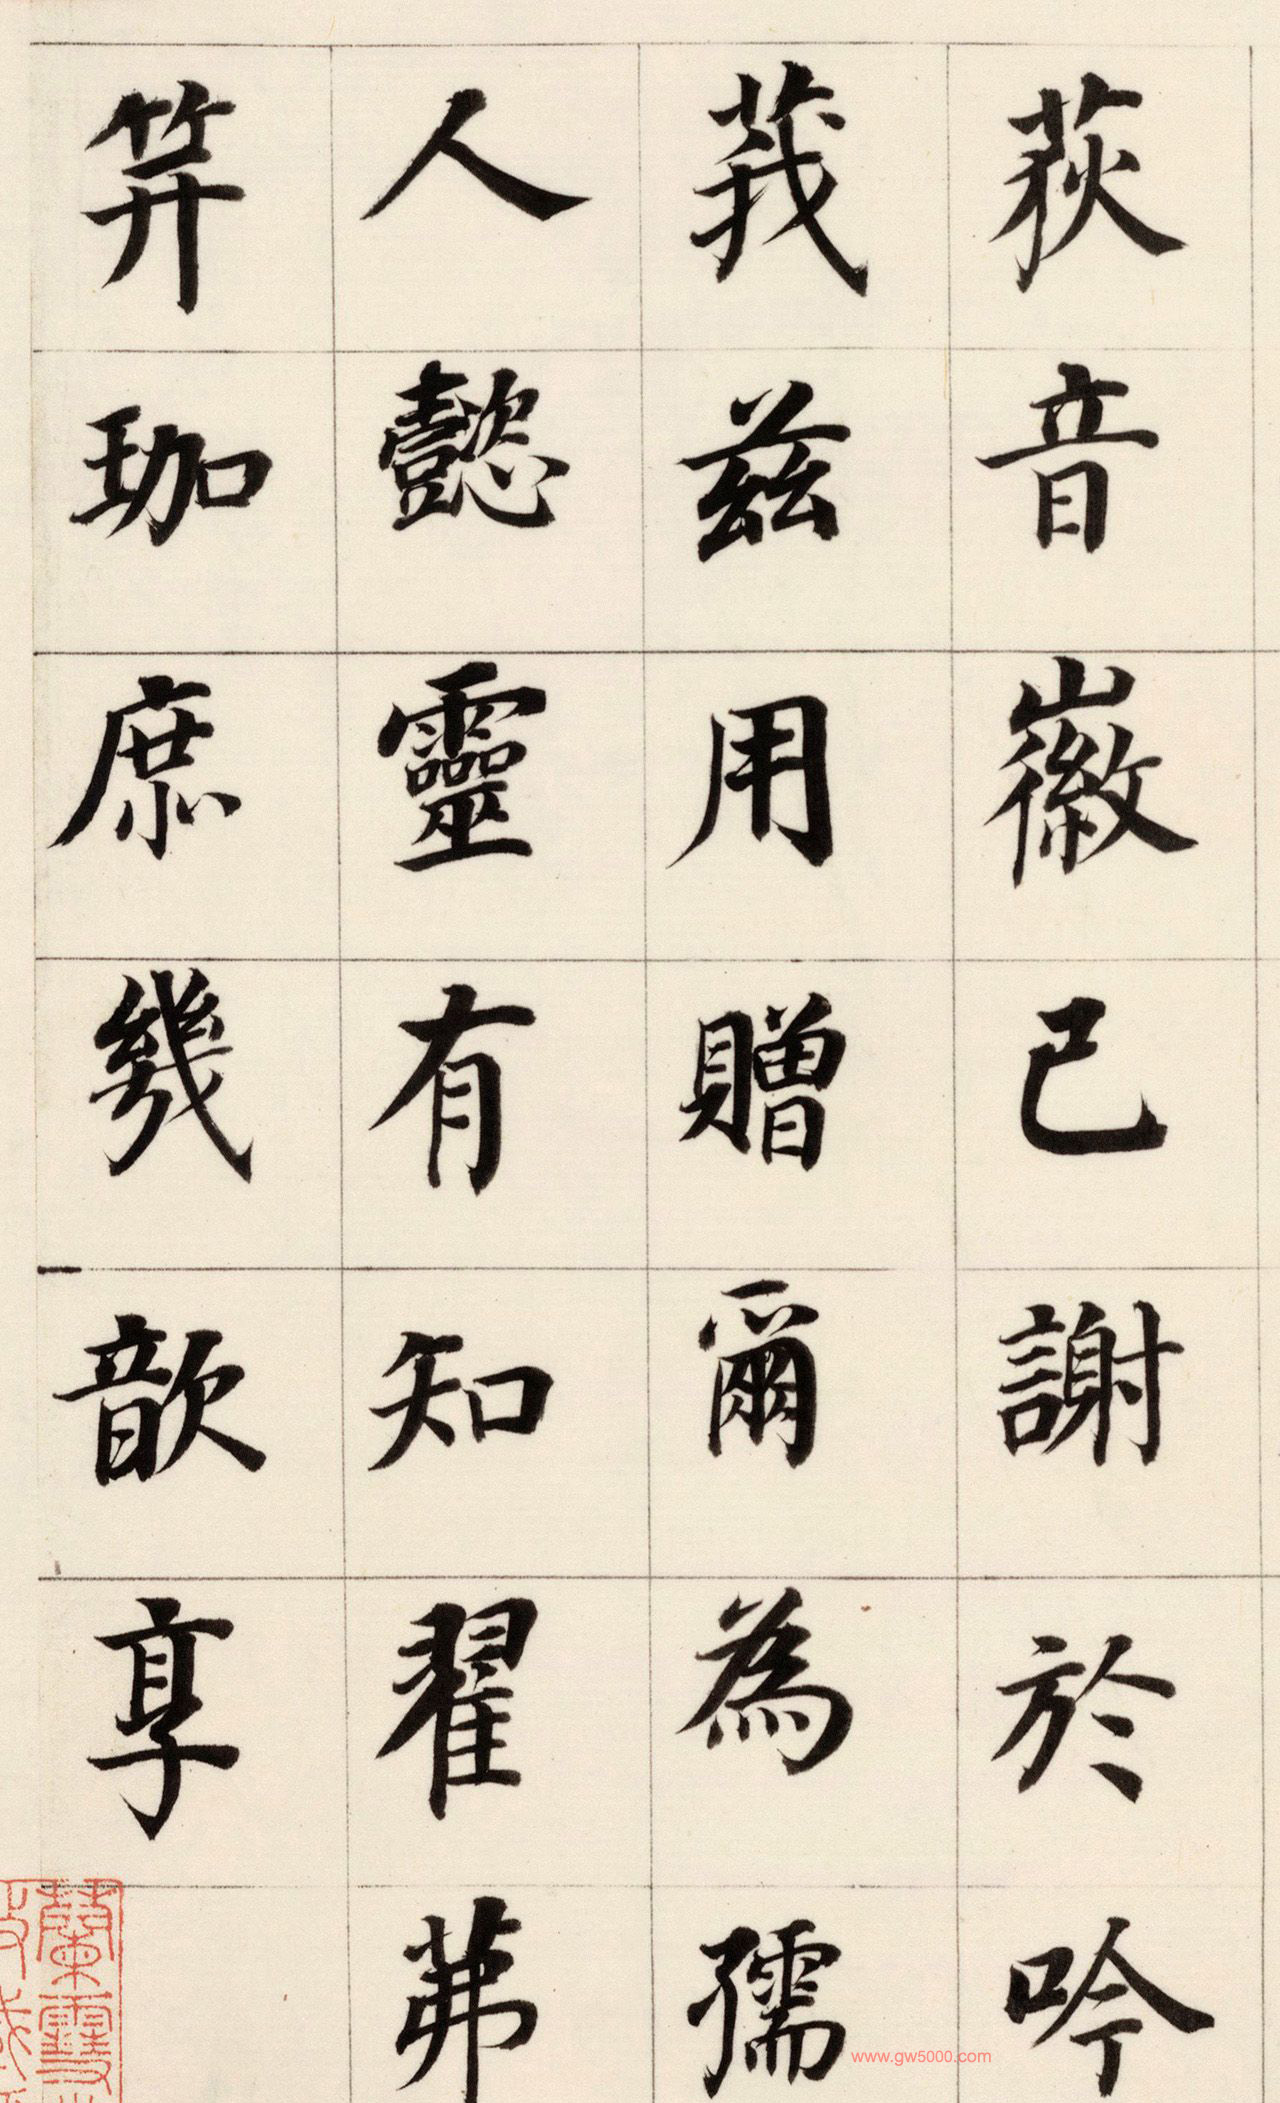 荻音徽已謝於吟
莪兹用贈爾為孺
人懿靈有知翟茀
笄珈庶幾歆享
www.gw5000.com